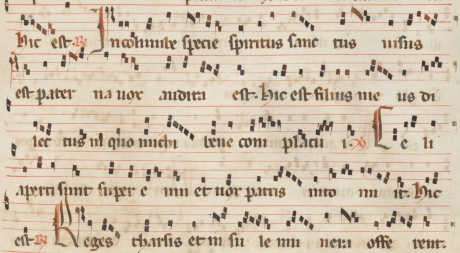 hic est. R In columbe specie spiritus sanc tus uisus
est pater na uox audita est. Hic est filius me us di
lec tus in quo michi bene com placu i. V Ce li
aperti sunt super e um et uox patris into nu it. Hic
est R Reges tharsis et in su le mu nera offe rent.